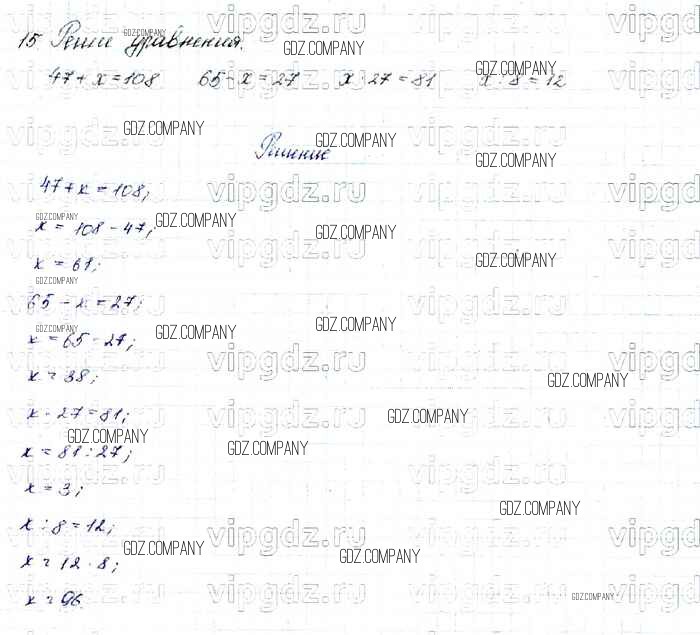 15 Реши уравнения.
47 + x = 108 65 - x = 27 x · 27 = 81 x : 8 = 12
Решение
47 + x = 108;
x = 108 - 47;
x = 61;
65 - x = 27;
x = 65 - 27;
x = 38;
x · 27 = 81;
x = 81 : 27;
x = 3;
x : 8 = 12;
x = 12 · 8;
x = 96.
GDZ.COMPANY
vipgdz.ru